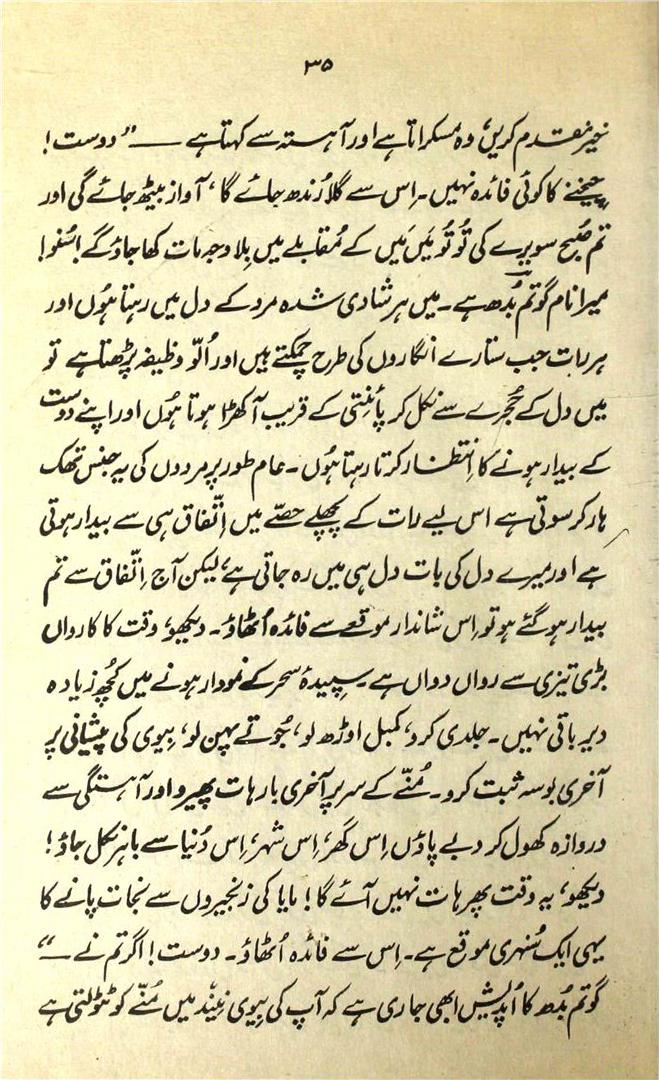 ۳۵
خیر مقدم کریں، وہ مسکراتا ہے اور آہستہ سے کہتا ہے — ”دوست!
چیخنے کا کوئی فائدہ نہیں۔ اِس سے گلا رُندھ جائے گا، آواز بیٹھ جائے گی اور
تم صُبح سویرے کی تُو تُو مَیں مَیں کے مُقابلے میں بِلا وجہ مات کھا جاؤ گے! سُنو!
میرا نام گوتم بُدھ ہے۔ میں ہر شادی شدہ مرد کے دل میں رہتا ہُوں اور
ہر رات جب ستارے انگاروں کی طرح چمکتے ہیں اور اُلّو وظیفہ پڑھتا ہے تو
میں دل کے حُجرے سے نکل کر پائنتی کے قریب آ کھڑا ہوتا ہُوں اور اپنے دوست
کے بیدار ہونے کا اِنتظار کرتا رہتا ہُوں۔ عام طور پر مردوں کی یہ جنس تھک
ہار کر سوتی ہے اس لیے رات کے پچھلے حصّے میں اِتّفاق ہی سے بیدار ہوتی
ہے اور میرے دل کی بات دل ہی میں رہ جاتی ہے، لیکن آج اِتّفاق سے تم
بیدار ہو گئے ہو تو اِس شاندار موقعے سے فائدہ اُٹھاؤ۔ دیکھو، وقت کا کارواں
بڑی تیزی سے رواں دواں ہے۔ سپیدۂ سحر کے نمودار ہونے میں کُچھ زیادہ
دیر باقی نہیں۔ جلدی کرو، کمبل اوڑھ لو، جُوتے پہن لو، بیوی کی پیشانی پر
آخری بوسہ ثبت کرو۔ مُنّے کے سر پر آخری بار ہات پھیرو اور آہستگی سے
دروازہ کھول کر دبے پاؤں اِس گھر، اِس شہر، اِس دُنیا سے باہر نکل جاؤ!
دیکھو، یہ وقت پھر ہات نہیں آئے گا! مایا کی زنجیروں سے نجات پانے کا
یہی ایک سُنہری موقع ہے۔ اِس سے فائدہ اُٹھاؤ۔ دوست! اگر تم نے —“
گوتم بُدھ کا اُپدیش ابھی جاری ہے کہ آپ کی بیوی نیند میں مُنّے کو ٹٹولتی ہے